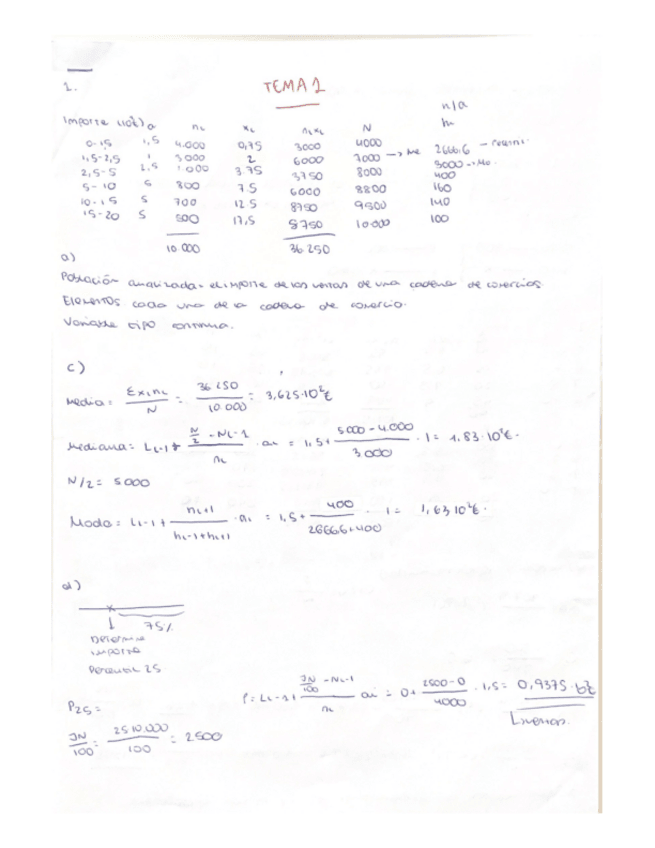 1.
TEMA 1
n/a
Importe (10²) a ni xi nixi N hi
0-1,5 1,5 4.000 0,75 3000 4000 2666.6
1,5-2,5 1 3000 2 6000 7000 → Me 3000 → Mo.
2,5-5 2.5 1000 3.75 3750 8000 400
5-10 5 800 7.5 6000 8800 160
10-15 5 700 12.5 8750 9500 140
15-20 5 500 17,5 8750 10.000 100
10.000 36.250
a)
Población analizada: el importe de las ventas de una cadena de comercios.
Elementos cada una de la cadena de comercio.
Variable tipo continua.
c)
Media = Σxini / N = 36 250 / 10.000 = 3,625·10²€
Mediana = Li-1 + (N/2 - Ni-1) / ni · ai = 1,5 + (5000-4.000) / 3000 · 1 = 1,83·10²€.
N/2 = 5000
Moda = Li-1 + hi+1 / (hi-1+hi+1) · ai = 1,5 + 400 / (2666.6+400) · 1 = 1,63 10²€.
d)
75%
Determina
importe
Percentil 25
P25 =
JN/100 = 25 10.000 / 100 = 2500
P = Li-1 + (JN/100 - Ni-1) / ni · ai = 0 + (2500-0) / 4000 · 1,5 = 0,9375·10²